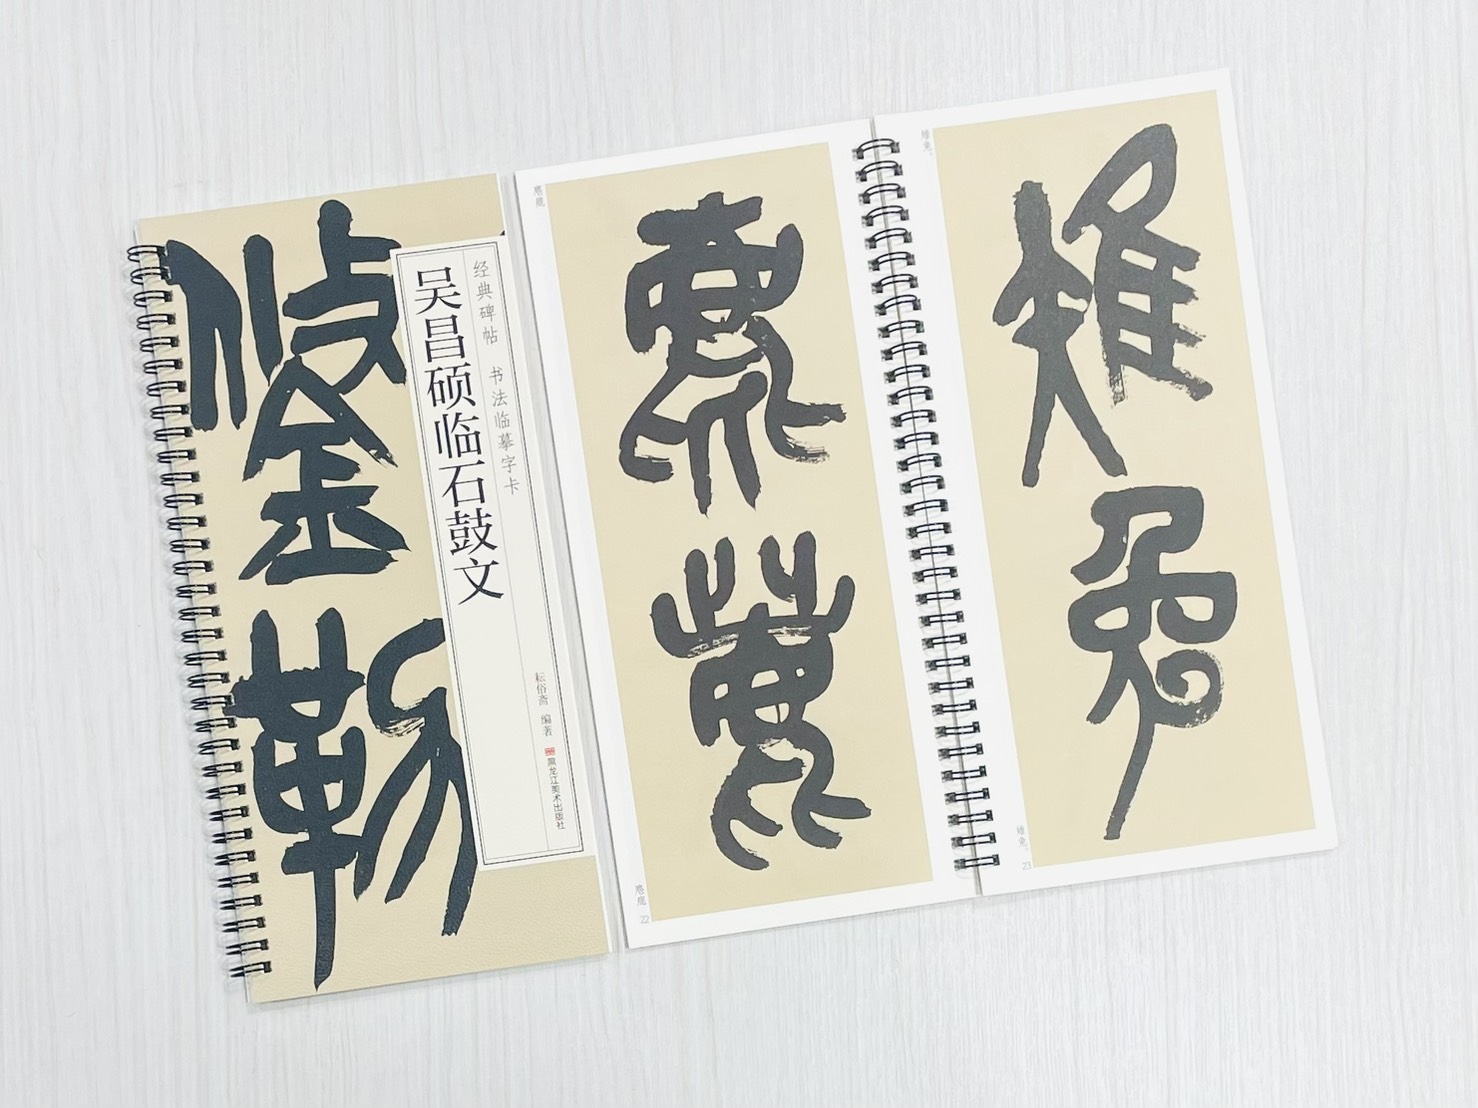 鋚
勒
经典碑帖·书法临摹字卡
吴昌硕临石鼓文
耘俗斋 编著
黑龙江美术出版社
22
雉
兔
雉兔。
雉兔。 23